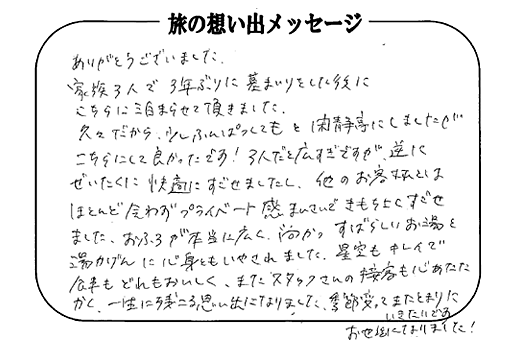 旅の想い出メッセージ
ありがとうございました.
家族3人で3年ぶりに墓まいりをした後に
こちらに泊まらせて頂きました.
久々だから、少しふんぱつしてもと閑静亭にしましたが
こちらにして良かったです！3人だと広すぎですが、逆に
ぜいたくに快適にすごせましたし、他のお客さまとは
ほとんど会わずプライベート感まんさいできもちよくすごせ
ました、おふろが本当に広く、向かっ すばらしいお湯と
湯かげんに心身ともいやされました. 星空もキレイで
食事もどれもおいしく、またスタッフさんの接客も心あたた
かく、一生にのこる思い出になりました、季節変ってまたとまりに
いきたいです
お世話になりました！